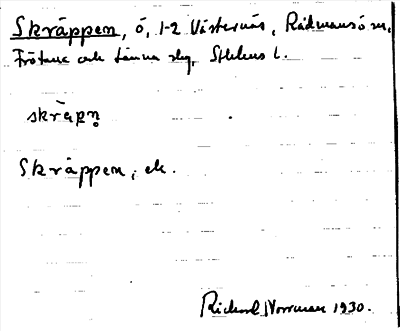 Skräppen, ö, 1-2 Västernäs, Rådmansö sn,
Frötuna och Länna skg, Sthlms l.
skräpn̥
Skräppen, ek.
Rickard Norrman 1930.